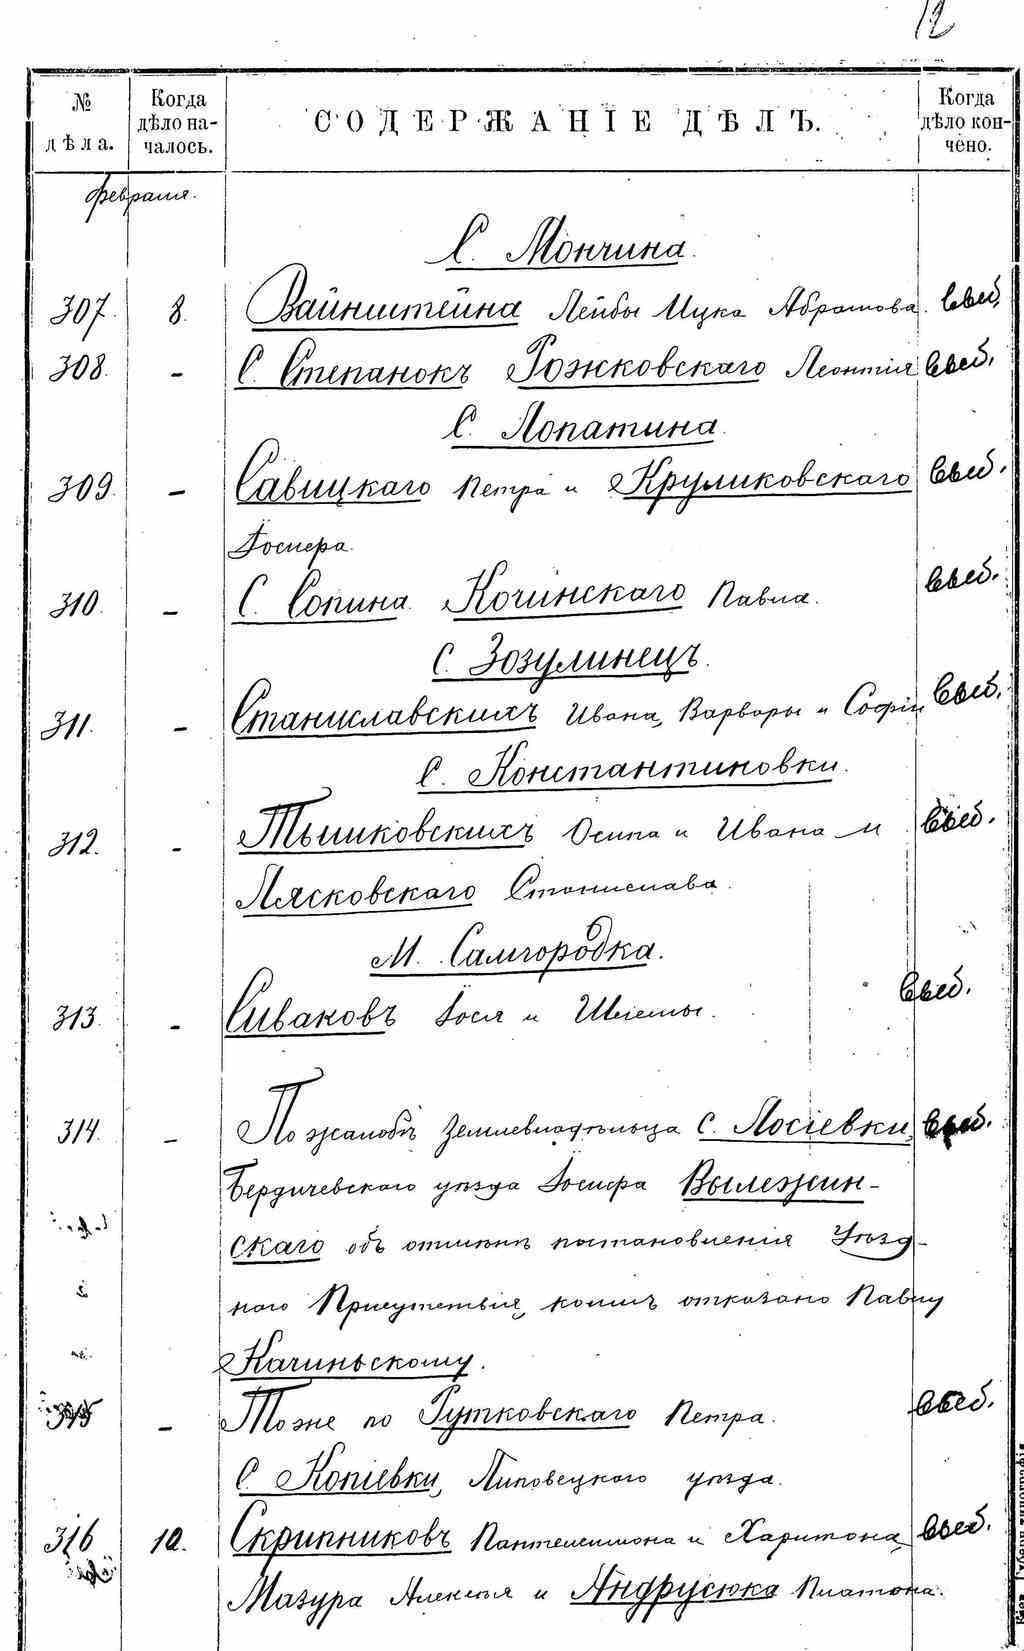 12
№ дѣла. Когда дѣло началось. СОДЕРЖАНІЕ ДѢЛЪ. Когда дѣло кончено.
февраля.
С. Мончина.
307. 8. Вайнштейна Лейбы Ицка Абрамова. выб.
308. - С. Степанокъ Рожковскаго Леонтія выб.
С. Лопатина.
309. - Савицкаго Петра и Круликовскаго выб.
Іосифа.
310. - С. Сопина Кочинскаго Павла. выб.
С. Зозулинецъ.
311. - Станиславскихъ Ивана, Варвары и Софіи выб.
С. Константиновки.
312. - Тышковскихъ Осипа и Ивана и выб.
Лясковскаго Станислава.
М. Самгородка.
313. - Сиваковъ Іося и выб.
314. - По жалобѣ Землевладѣльца С. Лосіевки, выб.
Бердичевскаго уѣзда Іосифа Вылежин-
скаго объ отмѣнѣ постановленія Уѣзд-
наго Присутствія, коимъ отказано Павлу
Качиньскому.
315 - Тоже по Рутковскаго Петра. выб.
С. Копіевки, Липовецкаго уѣзда.
316 10. Скрипниковъ Пантелеимона и Харитона, выб.
Мазура Алексѣя и Андрусюка Платона.
Губерн. типографія